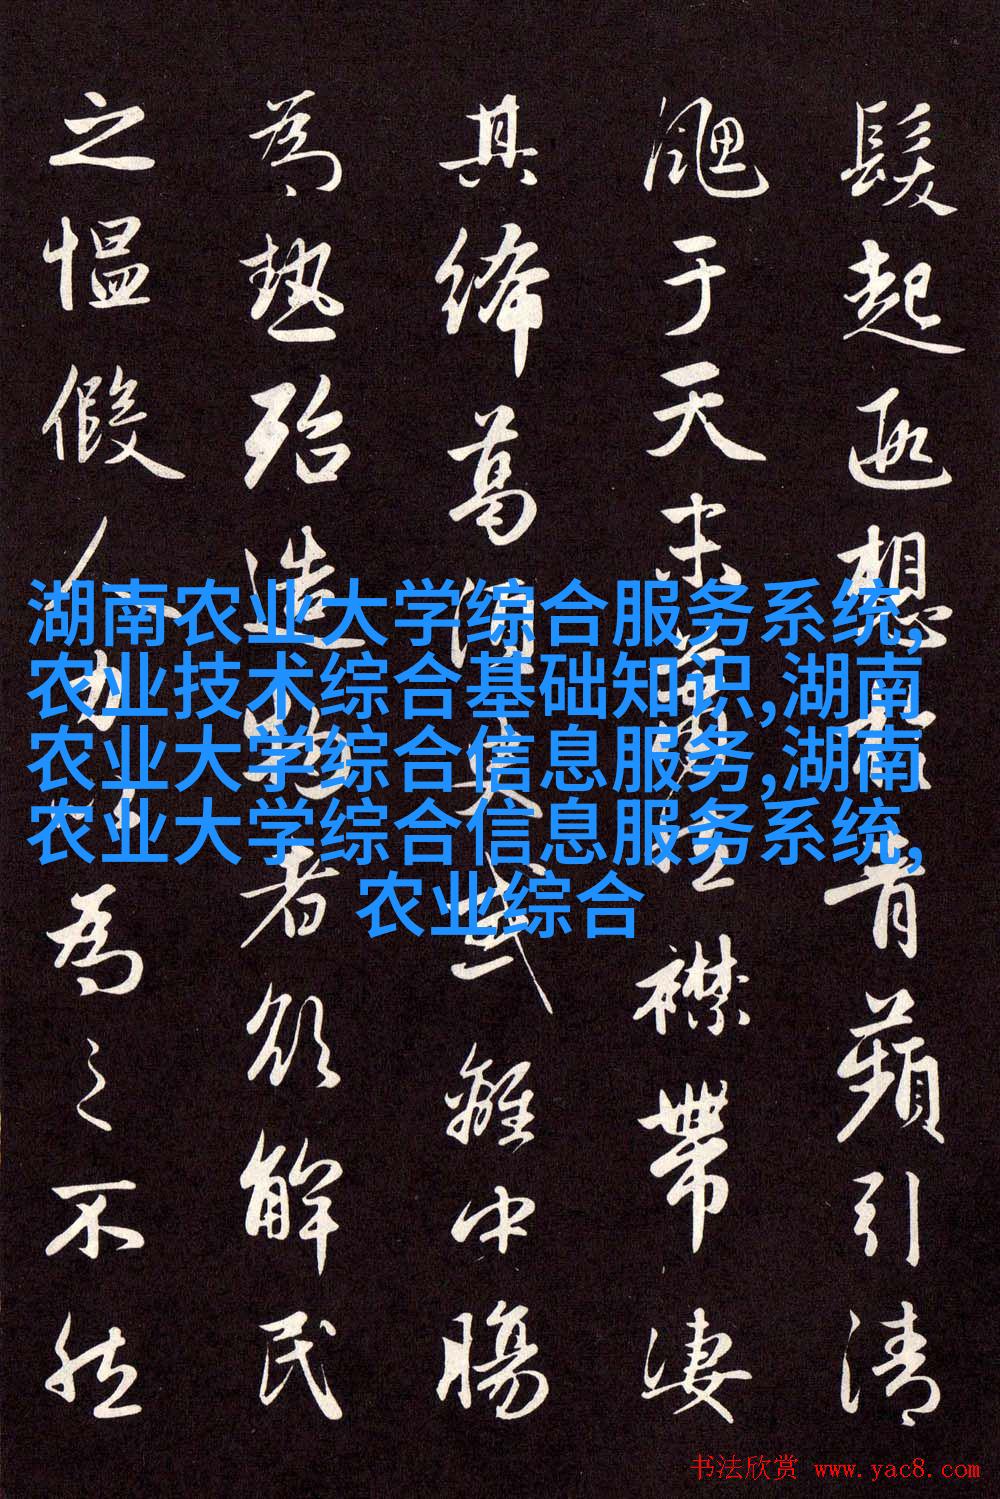 髮起遐想青蘋引清
颸于天末襟帶凄
其絺葛或離中腸
為熱殆造者欲解民
之慍假人力為之不然
湖南农业大学综合服务系统,
农业技术综合基础知识,湖南
农业大学综合信息服务,湖南
农业大学综合信息服务系统,
农业综合
书法欣赏 www.yac8.com